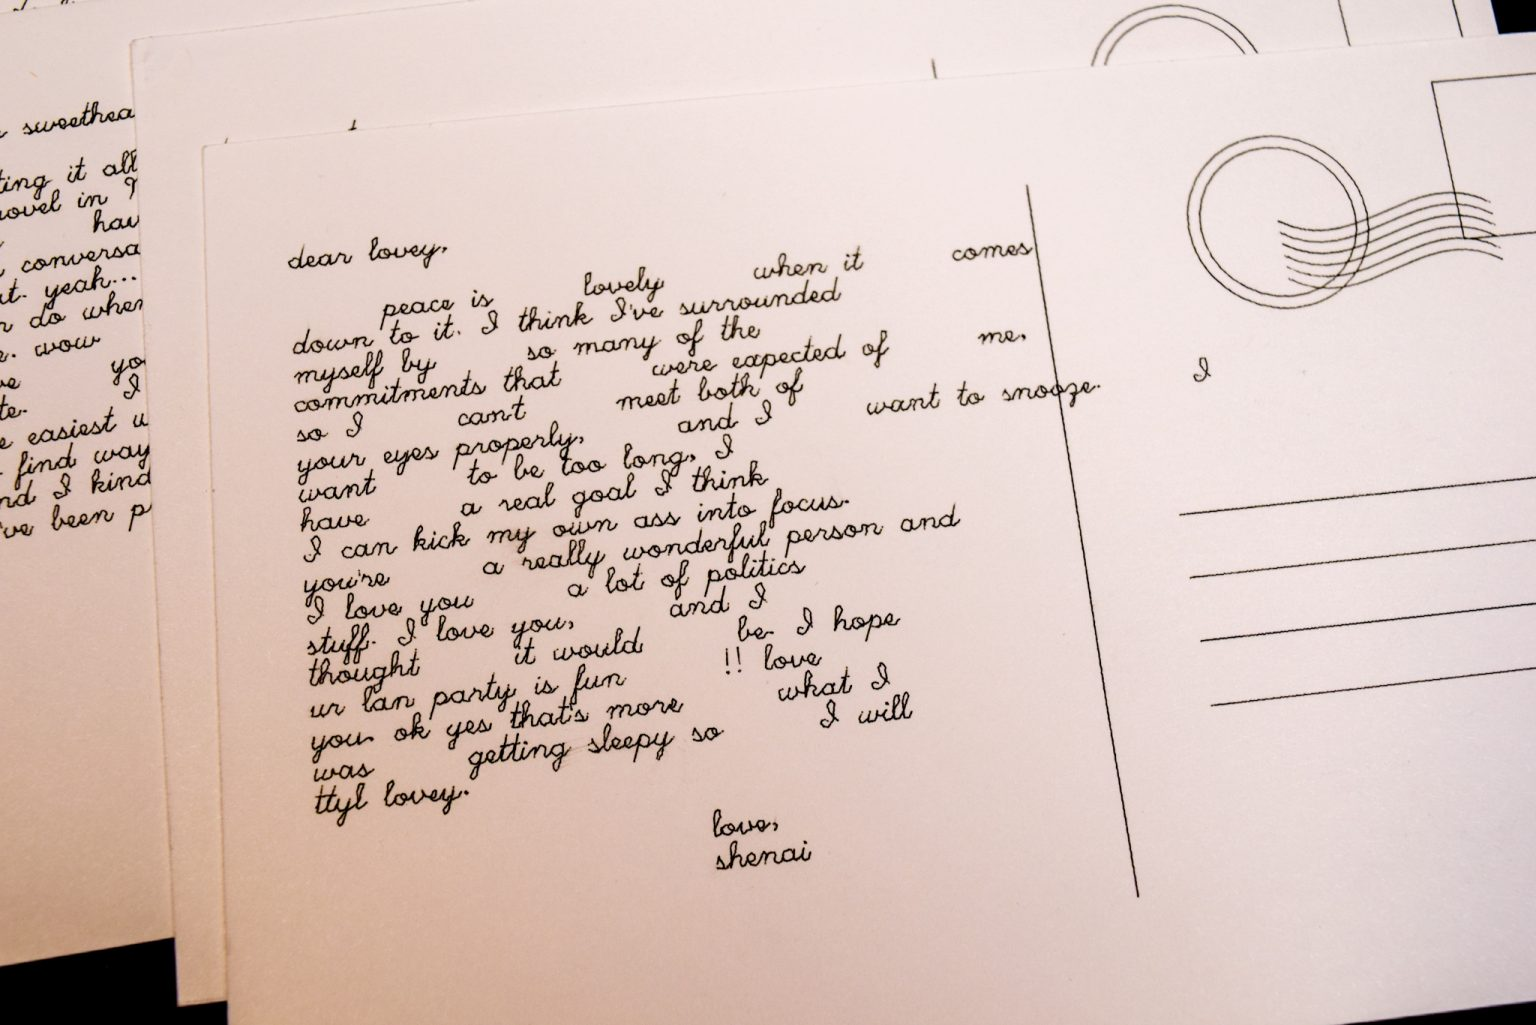 sweethea
ting it all
novel in
hav
conversa
t. yeah...
do when
. wow
yo
I
te.
easiest w
find way
nd I kind
've been p
dear lovey,
peace is lovely when it comes
down to it. I think I've surrounded
myself by so many of the
commitments that were expected of me.
so I can't meet both of
your eyes properly, and I want to snooze. I
want to be too long, I
have a real goal I think
I can kick my own ass into focus.
you're a really wonderful person and
I love you a lot of politics
stuff. I love you, and I
thought it would be. I hope
ur lan party is fun !! love
you. ok yes that's more what I
was getting sleepy so I will
ttyl lovey.
love,
shenai